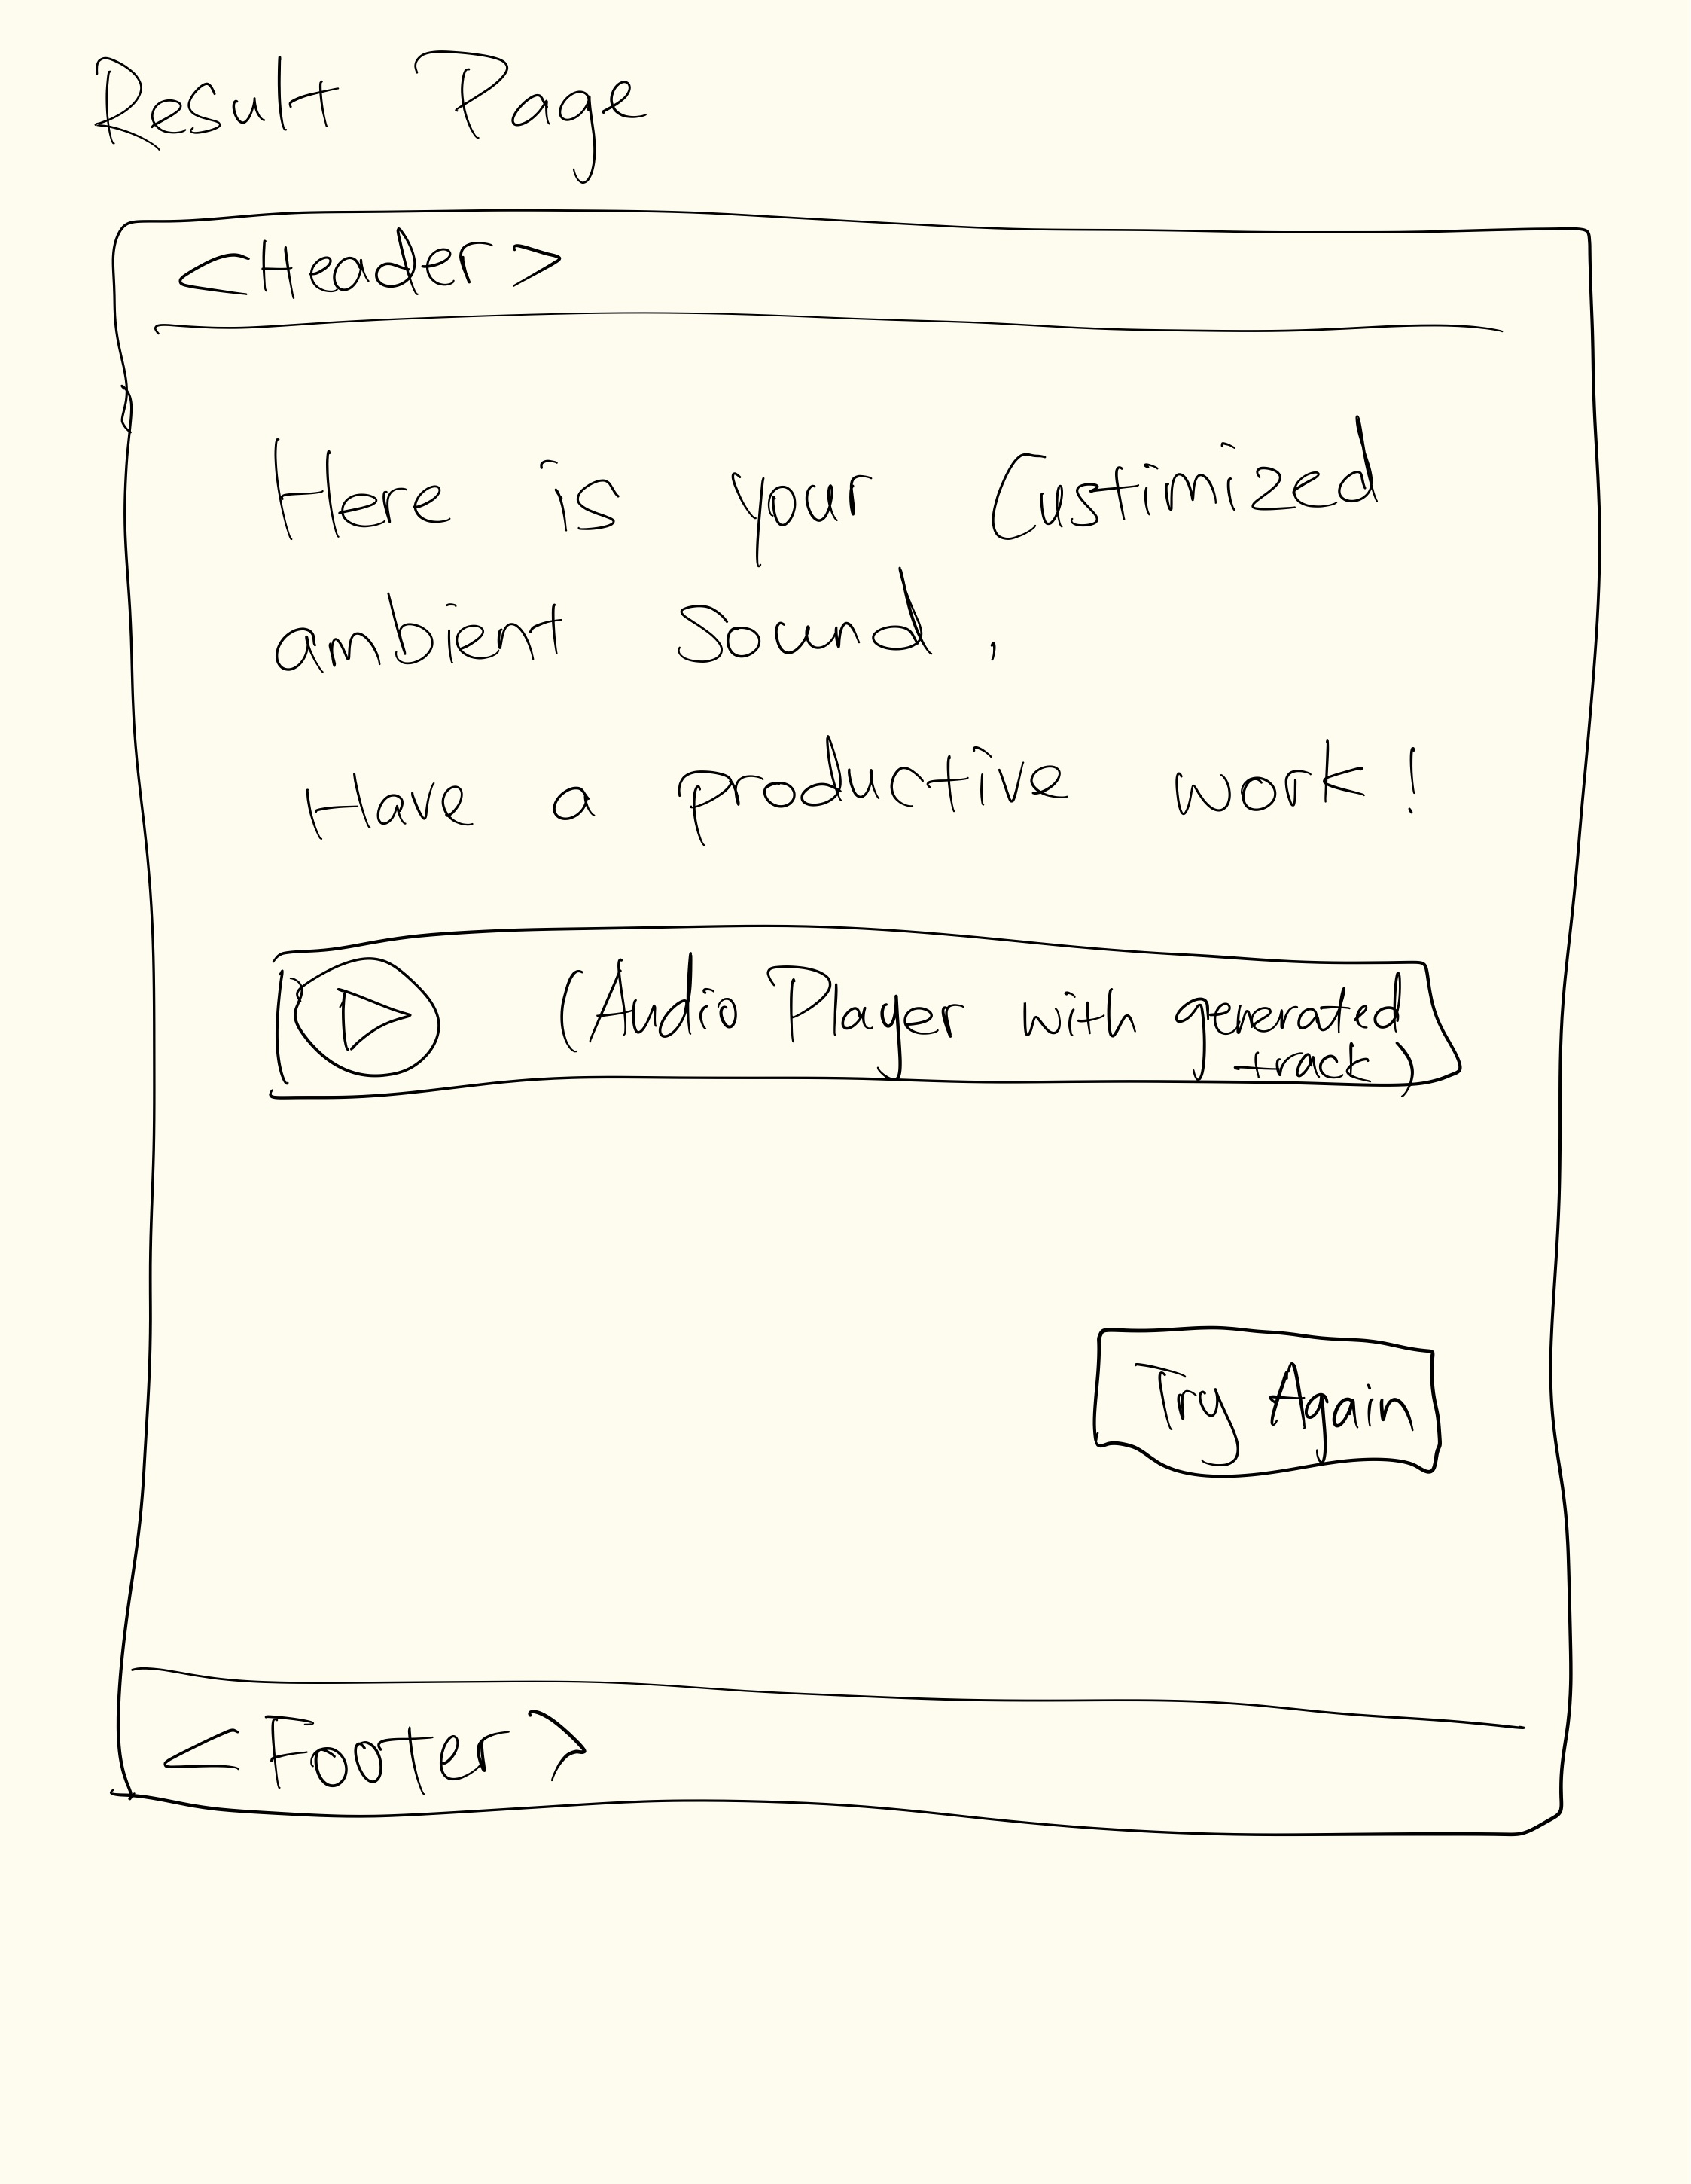 Result Page
<Header>
Here is your Custimized
ambient sound.
Have a productive work!
(Audio Player with generated
track)
Try Again
<Footer>